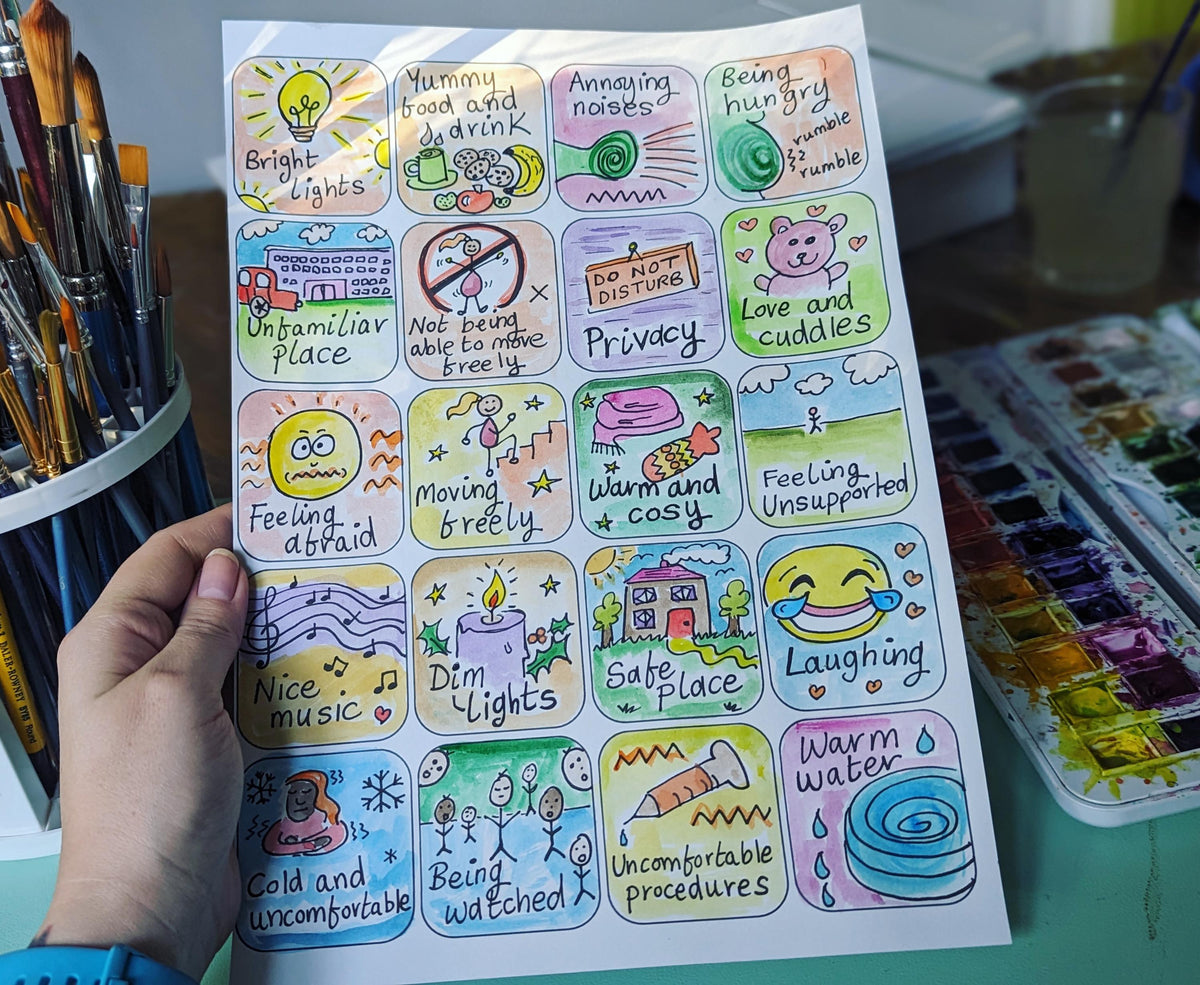 Bright
lights
Yummy
food and
drink
Annoying
noises
Being
hungry
rumble
rumble
Unfamiliar
place
Not being
able to move
freely
DO NOT
DISTURB
Privacy
Love and
cuddles
Feeling
afraid
Moving
freely
Warm and
cosy
Feeling
Unsupported
Nice
music
Dim
Lights
Safe
place
Laughing
Cold and
uncomfortable
Being
watched
Uncomfortable
procedures
Warm
water
DALER-ROWNEY